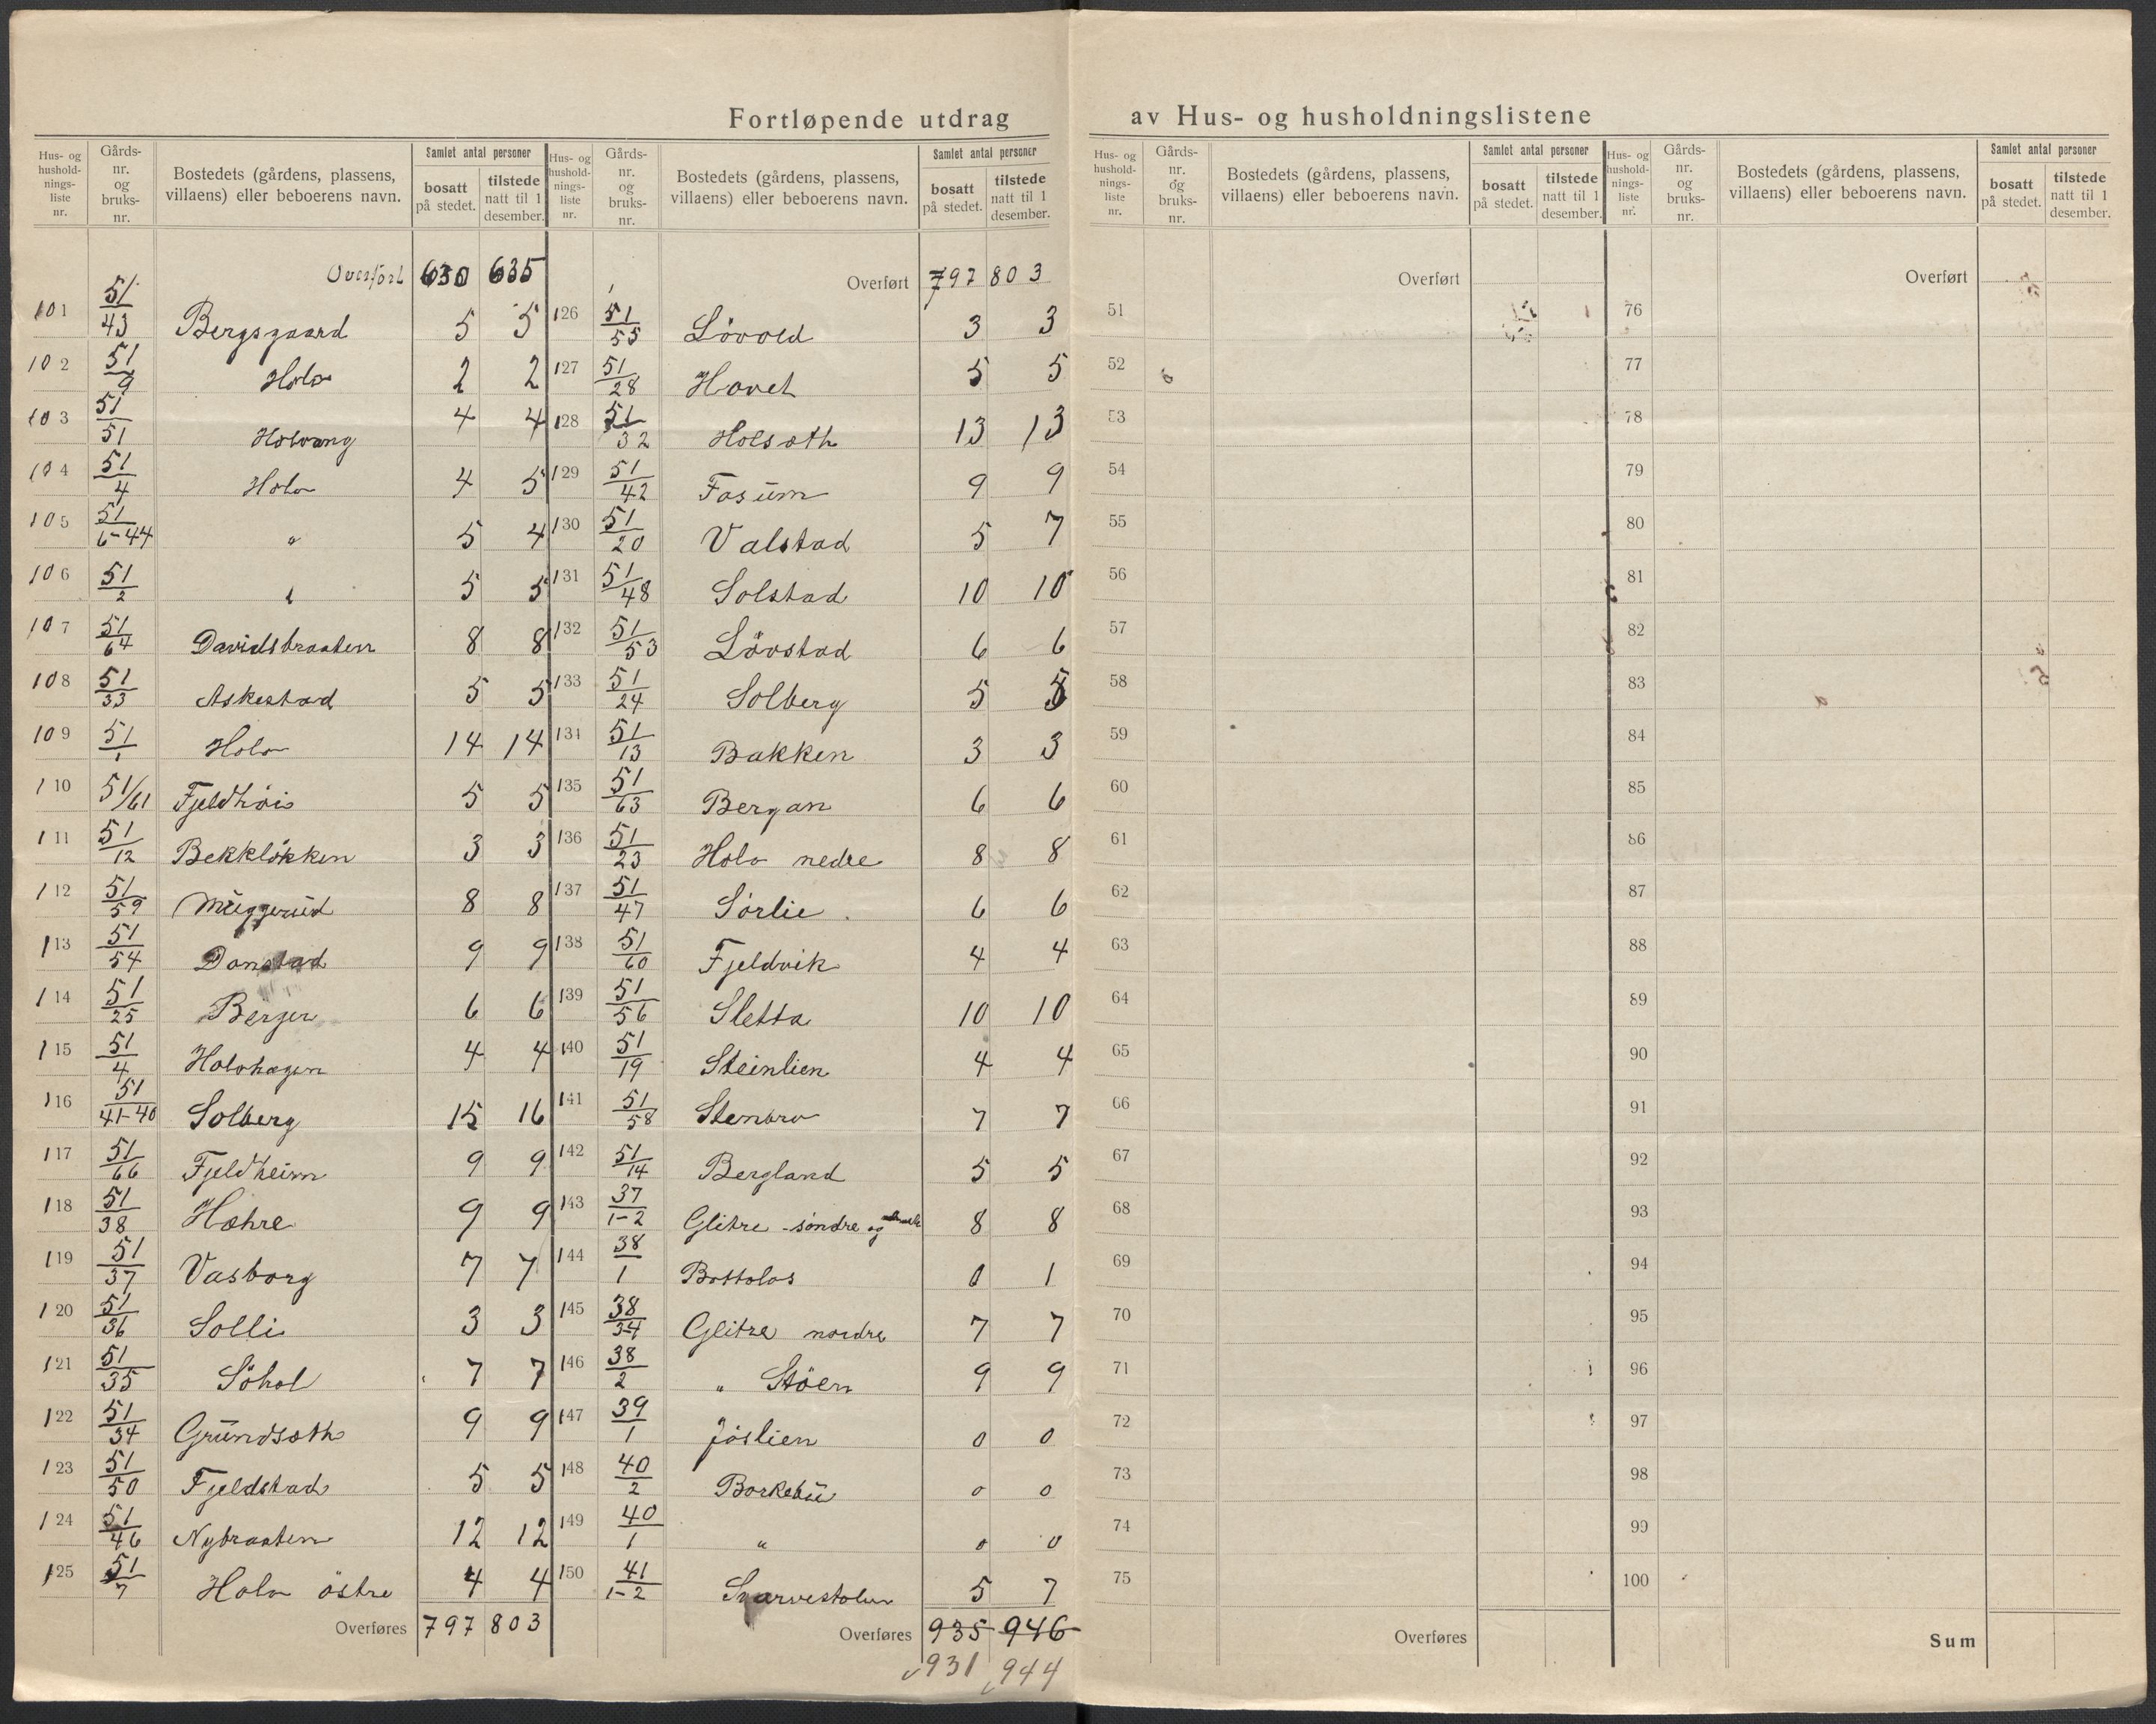 Fortløpende utdrag av Hus- og husholdningslistene
Hus- og hushold- nings- liste nr. | Gårds- nr. og bruks- nr. | Bostedets (gårdens, plassens, villaens) eller beboerens navn. | Samlet antal personer | bosatt på stedet. | tilstede natt til 1 desember.
Overført 630 635
101 51/43 Bergsgaard 5 5
102 51/9 Holo 2 2
103 51/51 Holvang 4 4
104 51/4 Holo 4 5
105 51/6-44 " 5 4
106 51/2 " 5 5
107 51/64 Davidsbraaten 8 8
108 51/33 Askestad 5 5
109 51/1 Holo 14 14
110 51/61 Fjeldhöis 5 5
111 51/12 Bekklökken 3 3
112 51/59 Muggerud 8 8
113 51/54 Danstad 9 9
114 51/25 Berger 6 6
115 51/4 Holohagen 4 4
116 51/41-40 Solberg 15 16
117 51/66 Fjeldheim 9 9
118 51/38 Hæhre 9 9
119 51/37 Vasborg 7 7
120 51/36 Solli 3 3
121 51/35 Söhol 7 7
122 51/34 Grundsæth 9 9
123 51/50 Fjeldstad 5 5
124 51/46 Nybraaten 12 12
125 51/7 Holo östre 4 4
Overføres 797 803
Hus- og hushold- nings- liste nr. | Gårds- nr. og bruks- nr. | Bostedets (gårdens, plassens, villaens) eller beboerens navn. | Samlet antal personer | bosatt på stedet. | tilstede natt til 1 desember.
Overført 797 803
126 51/55 Lövold 3 3
127 51/28 Hovet 5 5
128 51/32 Holsæth 13 13
129 51/42 Fosum 9 9
130 51/20 Valstad 5 7
131 51/48 Solstad 10 10
132 51/53 Lövstad 6 6
133 51/24 Solberg 5 5
134 51/13 Bakken 3 3
135 51/63 Bergan 6 6
136 51/23 Holo nedre 8 8
137 51/47 Sörlie 6 6
138 51/60 Fjeldvik 4 4
139 51/56 Sletta 10 10
140 51/19 Steinlien 4 4
141 51/58 Stenbro 7 7
142 51/14 Bergland 5 5
143 37/1-2 Glitre söndre og 8 8
144 38/1 Bottolos 0 1
145 38/34 Glitre nordre 7 7
146 38/2 " Stöen 9 9
147 39/1 Jöslien 0 0
148 40/2 Borkebu 0 0
149 40/1 " 0 0
150 41/1-2 5 7
Overføres 935 946
931 944
Hus- og hushold- nings- liste nr. | Gårds- nr. og bruks- nr. | Bostedets (gårdens, plassens, villaens) eller beboerens navn. | Samlet antal personer | bosatt på stedet. | tilstede natt til 1 desember.
Overført
51
52
53
54
55
56
57
58
59
60
61
62
63
64
65
66
67
68
69
70
71
72
73
74
75
Overføres
Hus- og hushold- nings- liste nr. | Gårds- nr. og bruks- nr. | Bostedets (gårdens, plassens, villaens) eller beboerens navn. | Samlet antal personer | bosatt på stedet. | tilstede natt til 1 desember.
Overført
76
77
78
79
80
81
82
83
84
85
86
87
88
89
90
91
92
93
94
95
96
97
98
99
100
Sum